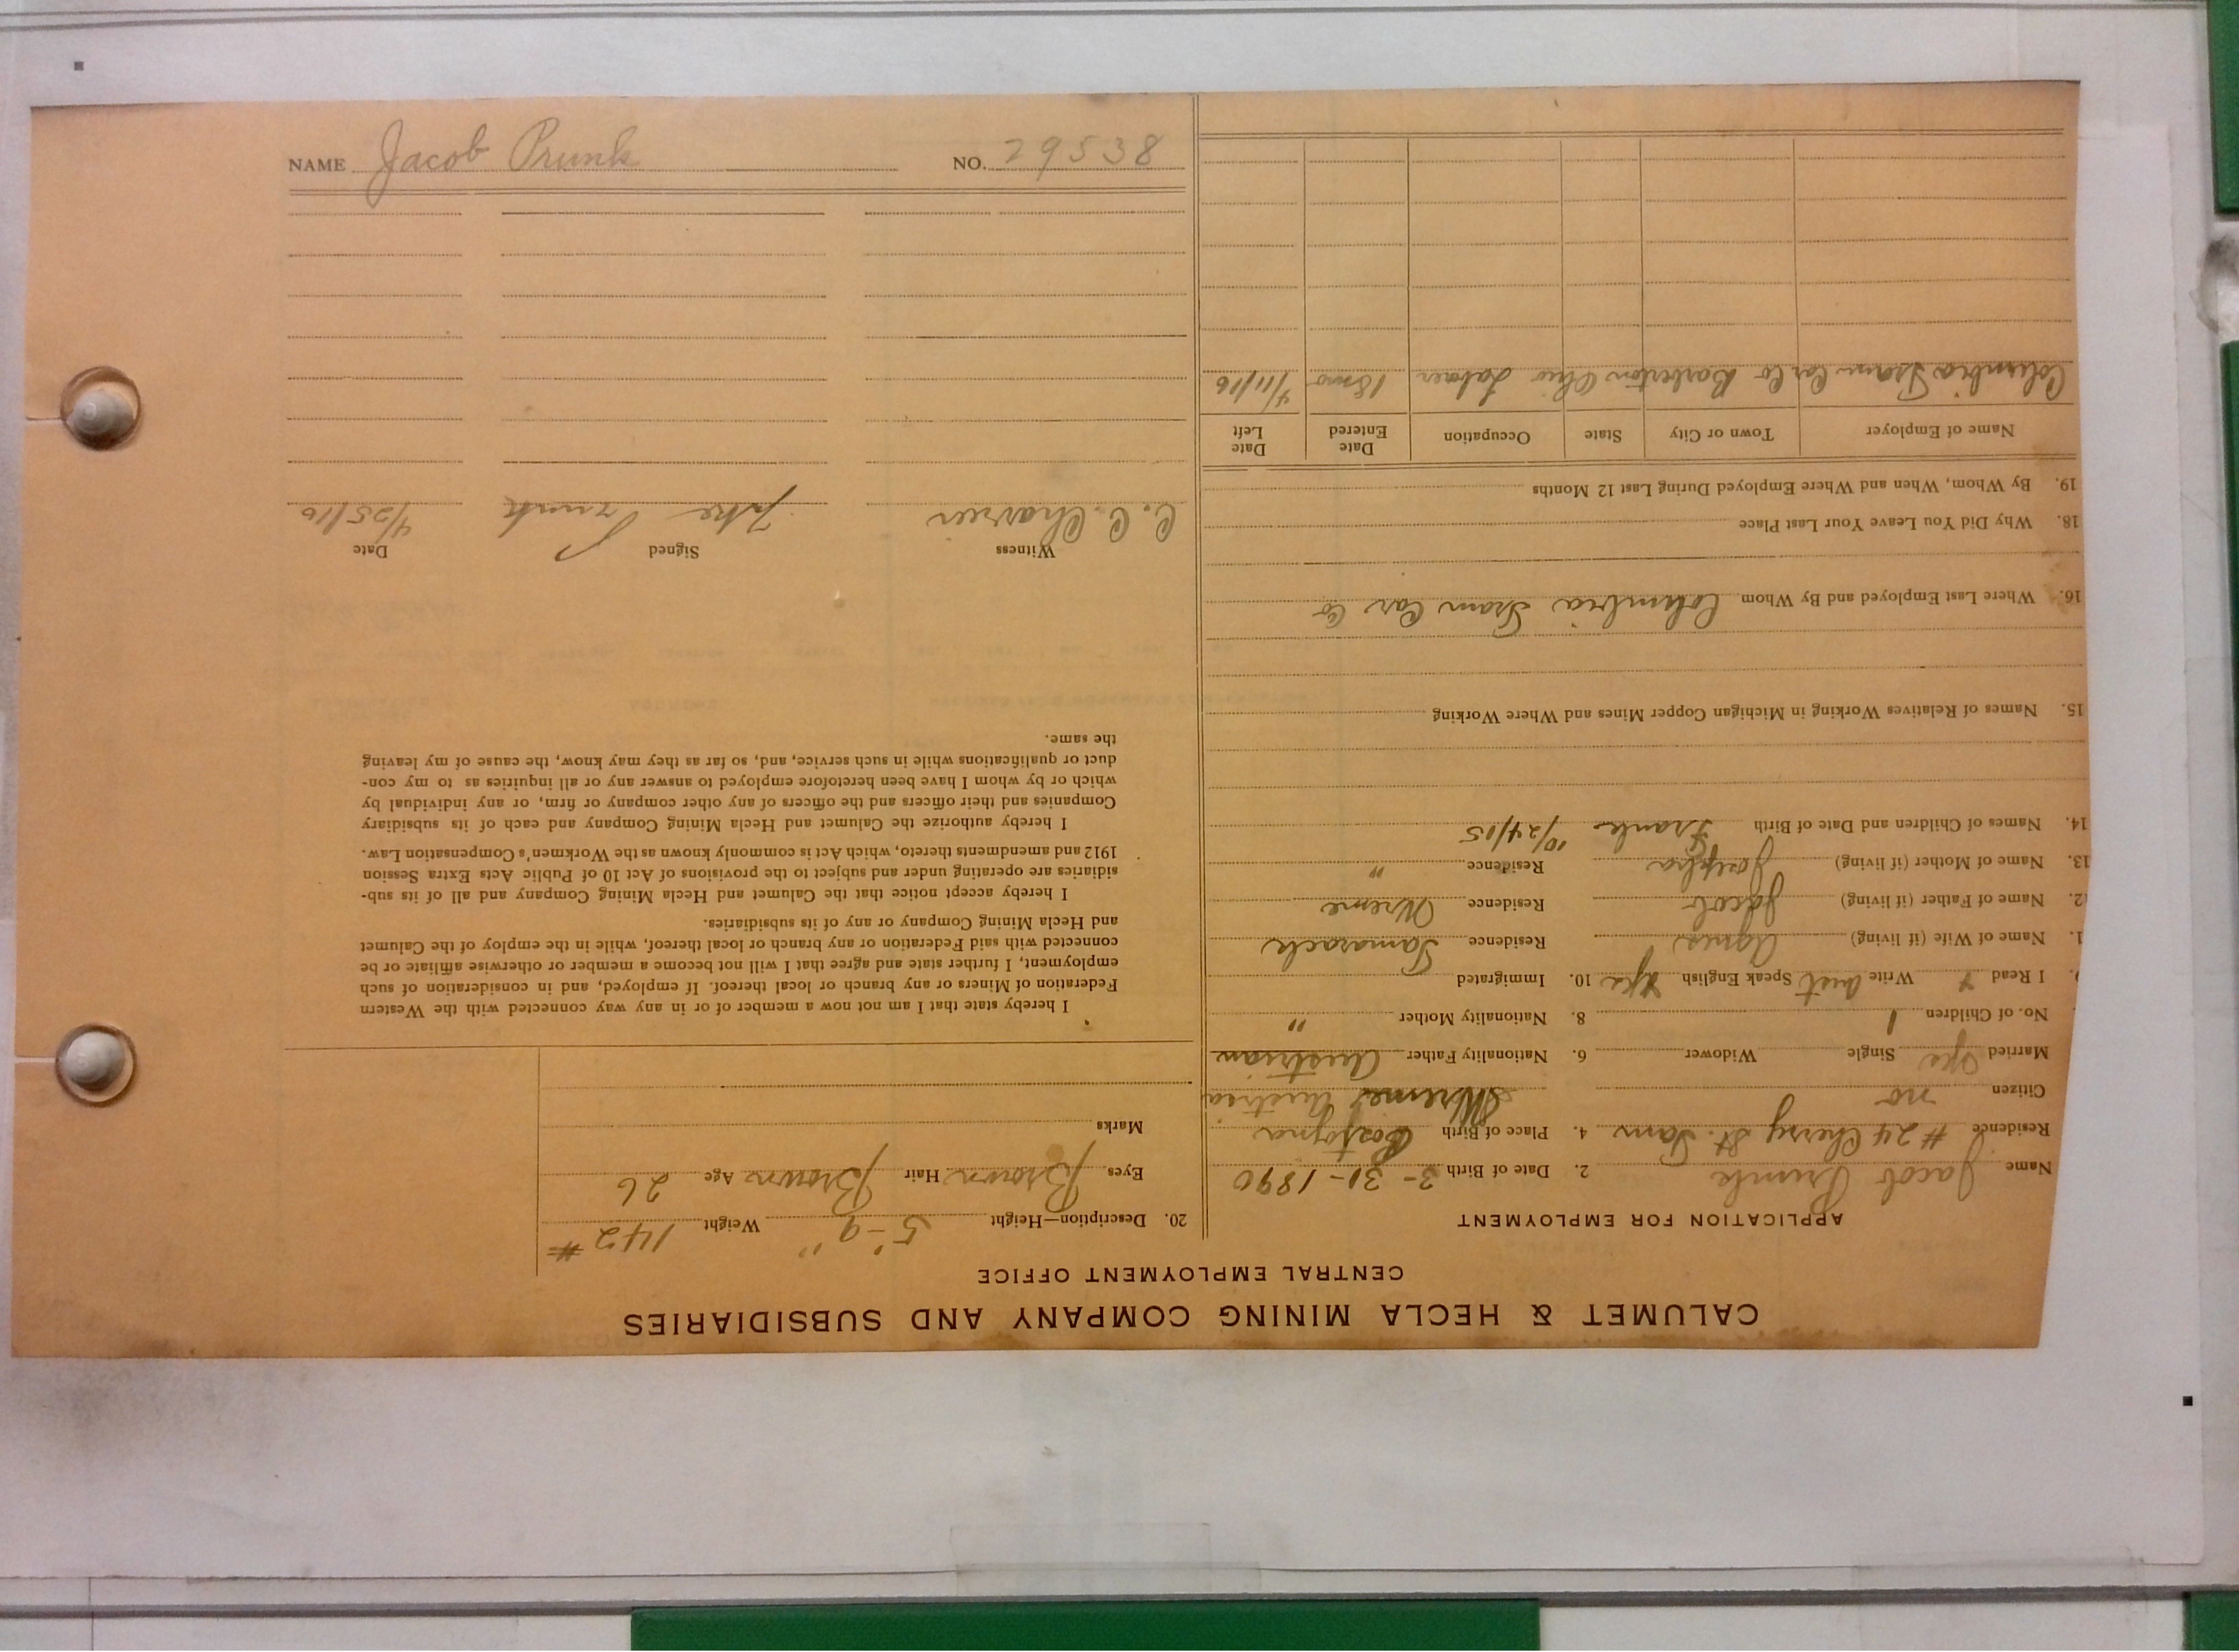 NAME Jacob Prunk NO. 29538
CALUMET & HECLA MINING COMPANY AND SUBSIDIARIES
CENTRAL EMPLOYMENT OFFICE
APPLICATION FOR EMPLOYMENT
Name Jacob Prunk 2. Date of Birth 3-31-1890
Residence #24 Cherry St. Tam 4. Place of Birth
Citizen no Austria
Married yes Single Widower 6. Nationality Father Austrian
No. of Children 1 8. Nationality Mother "
I Read Write Aust Speak English yes 10. Immigrated
1. Name of Wife (if living) Agnes Residence Tamarack
2. Name of Father (if living) Jacob Residence
13. Name of Mother (if living) Josepha Residence "
14. Names of Children and Date of Birth Frank 10/24/05
15. Names of Relatives Working in Michigan Copper Mines and Where Working
16. Where Last Employed and By Whom Columbia Tram Car Co
18. Why Did You Leave Your Last Place
19. By Whom, When and Where Employed During Last 12 Months
Name of Employer Town or City State Occupation Date Entered Date Left
Columbia Tram Car Co Barberton Ohio Laborer 18 mo 4/11/16
20. Description—Height 5'-9" Weight 142 #
Eyes Brown Hair Brown Age 26
Marks
I hereby state that I am not now a member of or in any way connected with the Western
Federation of Miners or any branch or local thereof. If employed, and in consideration of such
employment, I further state and agree that I will not become a member or otherwise affiliate or be
connected with said Federation or any branch or local thereof, while in the employ of the Calumet
and Hecla Mining Company or any of its subsidiaries.
I hereby accept notice that the Calumet and Hecla Mining Company and all of its sub-
sidiaries are operating under and subject to the provisions of Act 10 of Public Acts Extra Session
1912 and amendments thereto, which Act is commonly known as the Workmen's Compensation Law.
I hereby authorize the Calumet and Hecla Mining Company and each of its subsidiary
Companies and their officers and the officers of any other company or firm, or any individual by
which or by whom I have been heretofore employed to answer any or all inquiries as to my con-
duct or qualifications while in such service, and, so far as they may know, the cause of my leaving
the same.
Witness Signed Date
C. C. Charrier Jake Prunk 4/25/16